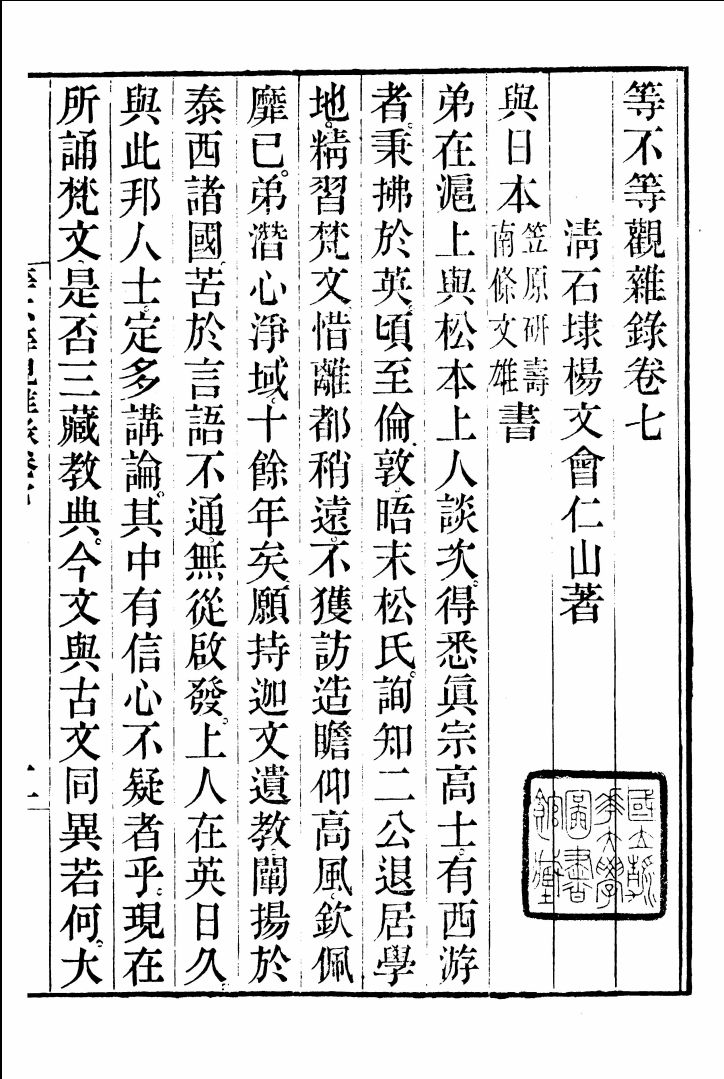 等不等觀雜錄卷七
淸石埭楊文會仁山著
與日本笠原研壽南條文雄書
弟在滬上與松本上人談次。得悉眞宗高士。有西游
者。秉拂於英。頃至倫敦。晤末松氏。詢知二公退居學
地。精習梵文。惜離都稍遠。不獲訪造。瞻仰高風。欽佩
靡已。弟潛心淨域。十餘年矣。願持迦文遺教。闡揚於
泰西諸國。苦於言語不通。無從啟發。上人在英日久。
與此邦人士。定多講論。其中有信心不疑者乎。現在
所誦梵文。是否三藏教典。今文與古文同異若何。大